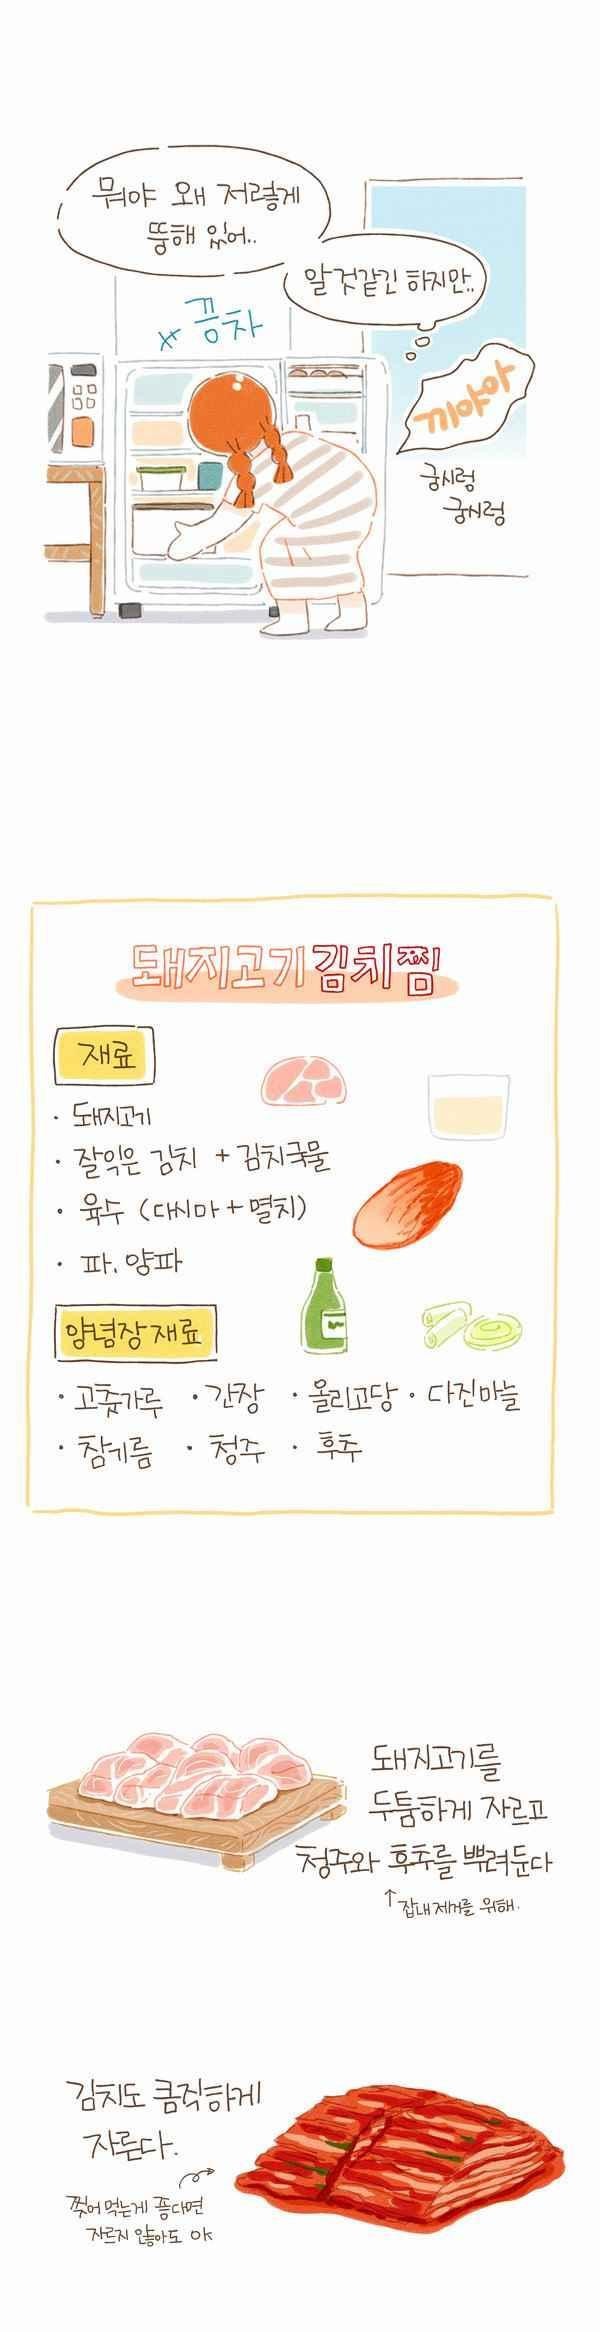 뭐야 왜 저렇게
뚱해 있어..
알 것같긴 하지만..
끙차
끼야아
궁시렁
궁시렁
돼지고기김치찜
재료
· 돼지고기
· 잘익은 김치 + 김치국물
· 육수 (다시마 + 멸치)
· 파, 양파
양념장 재료
· 고춧가루 · 간장 · 올리고당 · 다진마늘
· 참기름 · 청주 · 후추
돼지고기를
두툼하게 자르고
청주와 후추를 뿌려둔다
↑ 잡내 제거를 위해.
김치도 큼직하게
자른다.
찢어 먹는게 좋다면
자르지 않아도 OK